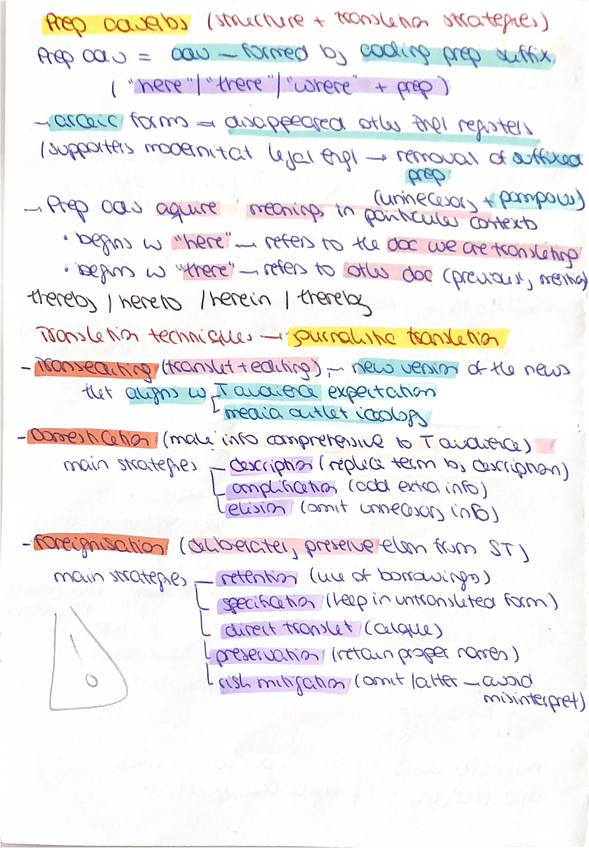 Prep adverbs (structure + translation strategies)
Prep adv = adv – formed by adding prep suffix
("here"/"there"/"where" + prep)
– archaic forms → disappeared other Engl registers
(supporters modernital legal Engl → removal of suffixed
prep
(unnecessary + pompous)
– Prep adv aquire meaning in particular contexts
• begins w "here" – refers to the doc we are translating
• begins w "there" – refers to other doc (previously
thereby / hereto / herein / thereby
Translation techniques – journalistic translation
- Transediting (translat + editing) – new version of the news
that aligns w T audience expectation
media outlet ideology
- Domestication (make info comprehensive to T audience)
main strategies – description (replace term by description)
amplification (add extra info)
elision (omit unnecessary info)
- Foreignisation (deliberately preserve elem from ST)
main strategies – retention (use of borrowings)
specification (keep in untranslated form)
direct translat (calque)
preservation (retain proper names)
risk mitigation (omit/alter – avoid
misinterpret)
!